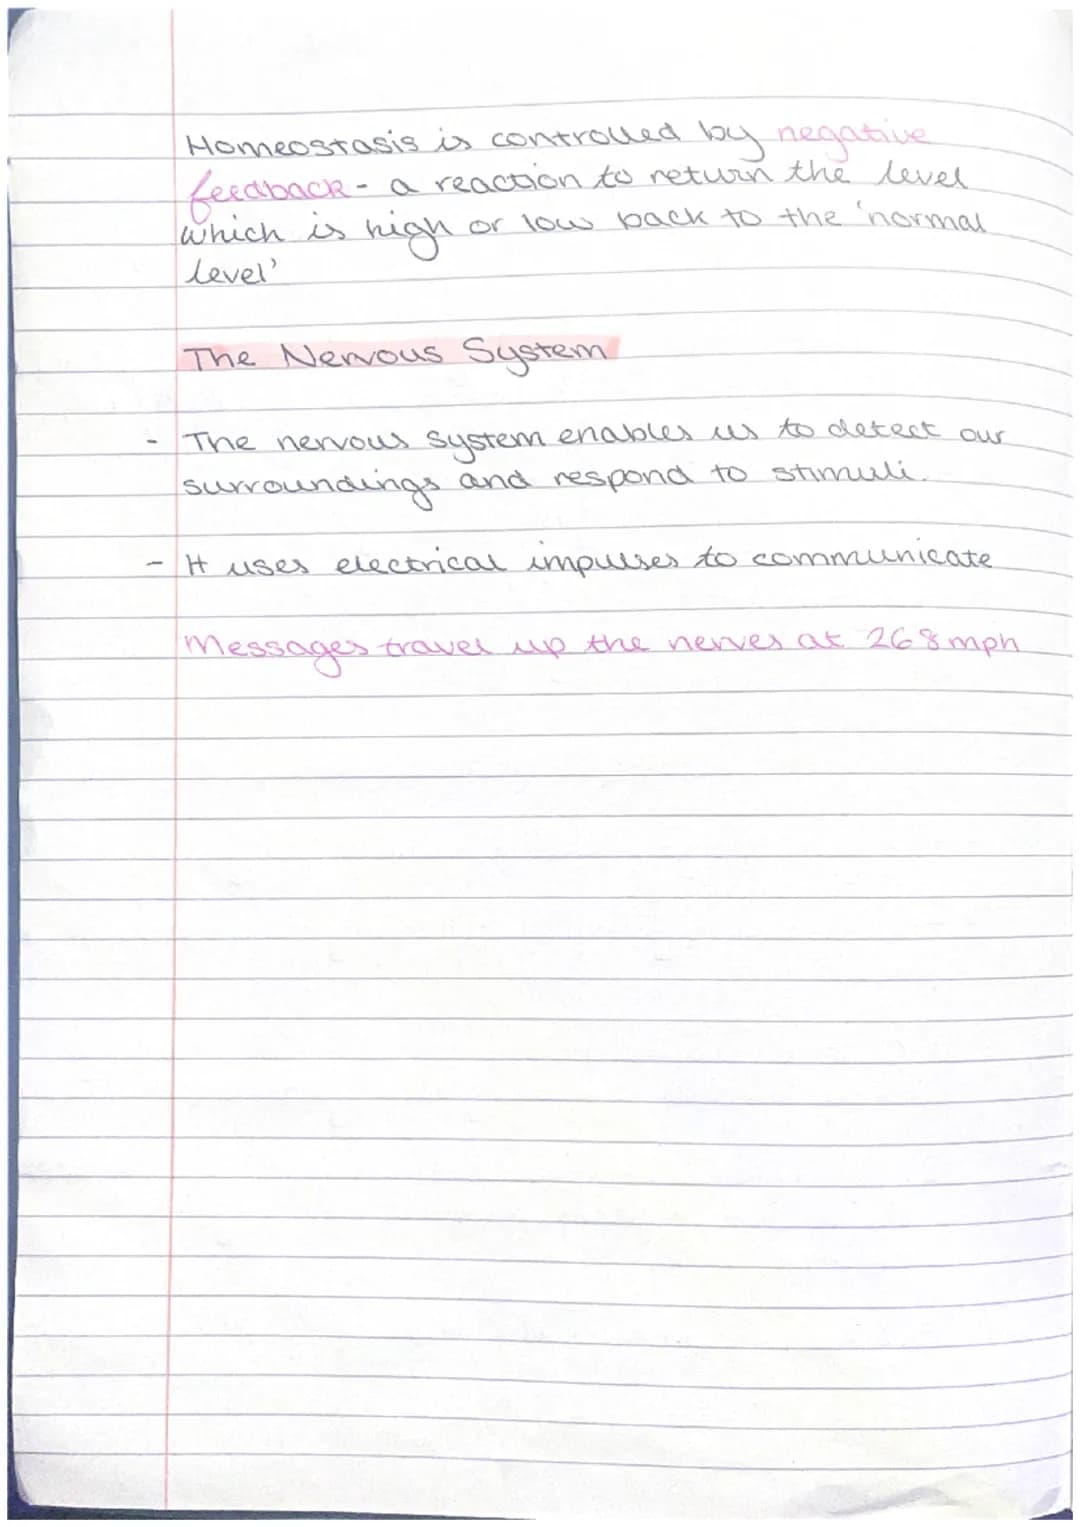 Homeostasis is controlled by negative
feedback - a reaction to return the level
which is high or low back to the 'normal
level'
The Nervous System
- The nervous system enables us to detect our
surroundings and respond to stimuli.
- It uses electrical impulses to communicate
Messages travel up the nerves at 268mph